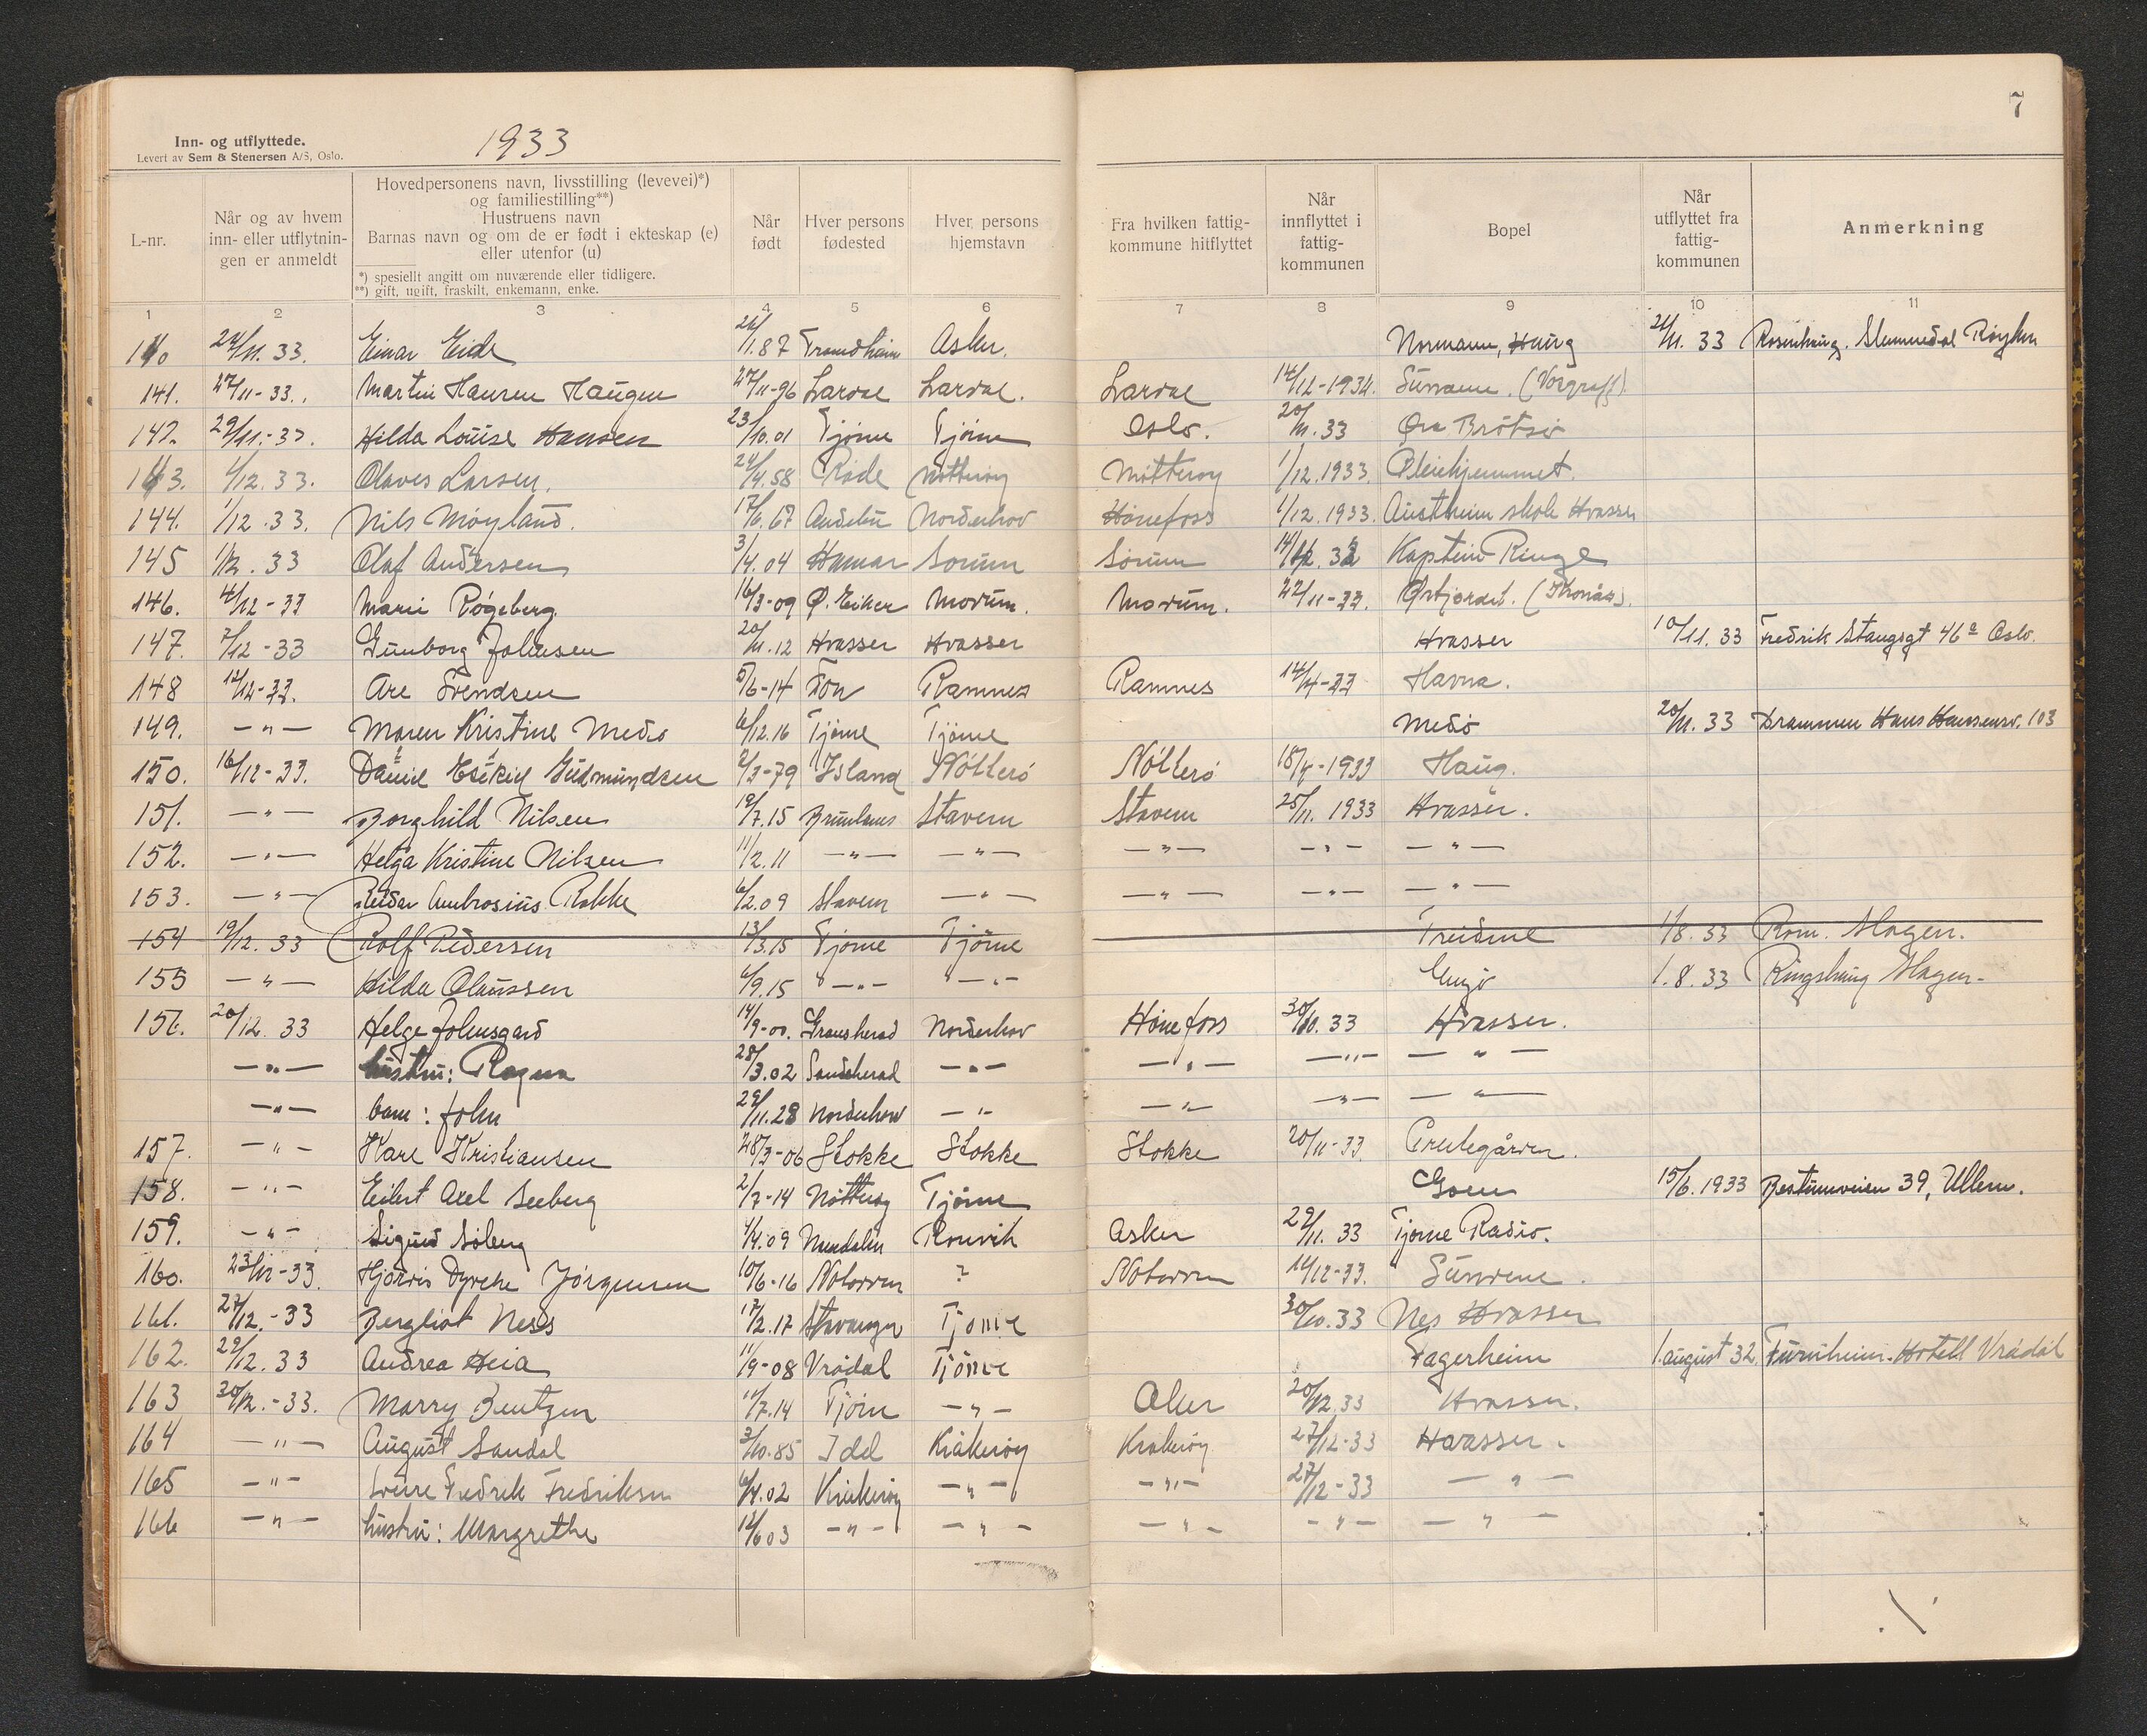 7
Inn- og utflyttede.
Levert av Sem & Stenersen A/S, Oslo.
1933
L-nr.
Når og av hvem inn- eller utflytningen er anmeldt
Hovedpersonens navn, livsstilling (levevei)*)
og familiestilling**)
Hustruens navn
Barnas navn og om de er født i ekteskap (e)
eller utenfor (u)
*) spesielt angitt om nuværende eller tidligere.
**) gift, ugift, fraskilt, enkemann, enke.
Når født
Hver persons fødested
Hver persons hjemstavn
Fra hvilken fattigkommune hitflyttet
Når innflyttet i fattigkommunen
Bopel
Når utflyttet fra fattigkommunen
Anmerkning
1 2 3 4 5 6 7 8 9 10 11
140 24/11.33. Einar Eide 26/1.87 Trondheim Asker. Normann, Haug 21/11.33 Rosenhaug. Slemmedal Røyken
141. 27/11-33. Martin Hansen Haugen 27/11-96 Lardal Lardal. Lardal 14/12-1932. Sunnane.
142. 29/11.-33. Hilda Louise Hansen 23/10.01 Tjøme Tjøme Oslo. 20/11.33 Øra Brøtsø
143. 1/12.33. Olaves Larsen. 24/4.58 Råde Nøtterøy Nøtterøy 1/12.1933. Pleiehjemmet.
144. 1/12.33. Nils Møyland. 17/6.67 Norderhov Hønefoss 1/12.1933. Austheim skole Hvasser
145 1/12.33 Olaf Andersen 3/4.04 Hamar Sørum Sørum Kaptein Ringe
146. 4/12-33 Marie Røgeberg. 16/3-09 Ø. Eiker Modum. Modum. 22/11-33.
147. 7/12-33 Gunborg Johnsen 20/11.12 Hvasser Hvasser Hvasser 10/11.33 Fredrik Stangsgt 46a Oslo.
148 12/12-33. Are Svendsen 5/6-14 Fon Ramnes Ramnes 14/4-33 Havna.
149. -"- Maren Kristine Medø 6/12.16 Tjøme Tjøme Medø 20/11.33 Drammen Hans Hansensv. 103
150. 16/12-33. Daniel Esekiel Gudmundsen 2/3-79 Island Nøtterø Nøtterø 18/5-1933 Haug.
151. -"- Borghild Nilsen 19/7.15 Brunlanes Stavern Stavern 25/11.1933 Hvasser.
152. -"- Helga Kristine Nilsen 11/2.11 -"- -"- -"- -"- -"-
153. -"- Reidar Ambrosius Rakke 6/2.09 Stavern -"- -"- -"- -"-
154 19/12.33 Rolf Pedersen 13/3.15 Tjøme Tjøme Treidene 1/8.33 Rom. Slagen.
155 -"- Hilda Olaussen 6/9.15 -"- -"- Engø 1.8.33 Ringshaug Slagen-
156. 20/12.33 Helge Johnsgard 14/9-00. Gransherad Norderhov Hønefoss 30/10.33 Hvasser.
-"- hustru: Ragna 28/3.02 Sandeherad -"- -"- -"- -"-
-"- barn: John 29/11.28 Norderhov -"- -"- -"- -"-
157. -"- Kare Kristiansen 28/3-06 Stokke Stokke Stokke 20/11-33. Prestegården.
158. -"- Eilert Axel Seeberg 2/7-14 Nøtterøy Tjøme Goen 15/6.1933 Bestumveien 39, Ullern.
159. -"- Sigurd Søberg 4/4.09 Asker 29/11.33 Tjøme Radio.
160. 23/12-33. Hjørdis Dyveke Jørgensen 10/6-16 Notodden ? Notodden 14/12-33. Sundene.
161. 27/12.-33 Bergliot Ness 17/2.17 Stavanger Tjøme 30/10.33 Nes Hvasser
162. 29/12.33 Andrea Heia 11/9-08 Vrådal Tjøme Fagerheim 1. august 32. Furuheim. Hotell Vrådal
163 30/12.-33. Marry Bentzen 11/7.14 Tjøm -"- Aker 20/12.33 Hvasser.
164 -"- August Sandal 3/10.85 Idd Kråkerøy Kråkerøy 27/12-33 Hvasser.
165 -"- Sverre Fredrik Fredriksen 6/4.02 Kråkerøy -"- -"- 27/12-33 -"-
166 -"- hustru: Margrethe 12/6 03 -"- -"- -"- -"- -"-